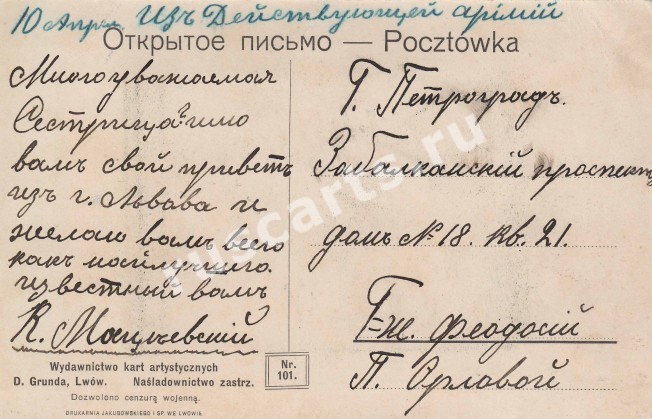 10 Апрѣл. Изъ Действующей армій
Открытое письмо — Pocztówka
Многоуважаемая
Сестрица шлю
вамъ свой приветъ
изъ г. Львова и
желаю вамъ всего
какъ найлучшого.
известный вамъ
К.
Г. Петроградъ.
Забалканскій проспектъ
домъ № 18. кв. 21.
Г-же. Феодосій
П. Орловой
Wydawnictwo kart artystycznych
D. Grunda, Lwów. Naśladownictwo zastrz.
Dozwolono cenzurą wojenną.
DRUKARNIA JAKUBOWSKIEGO I SP. WE LWOWIE
Nr.
101.
ruscarts.ru